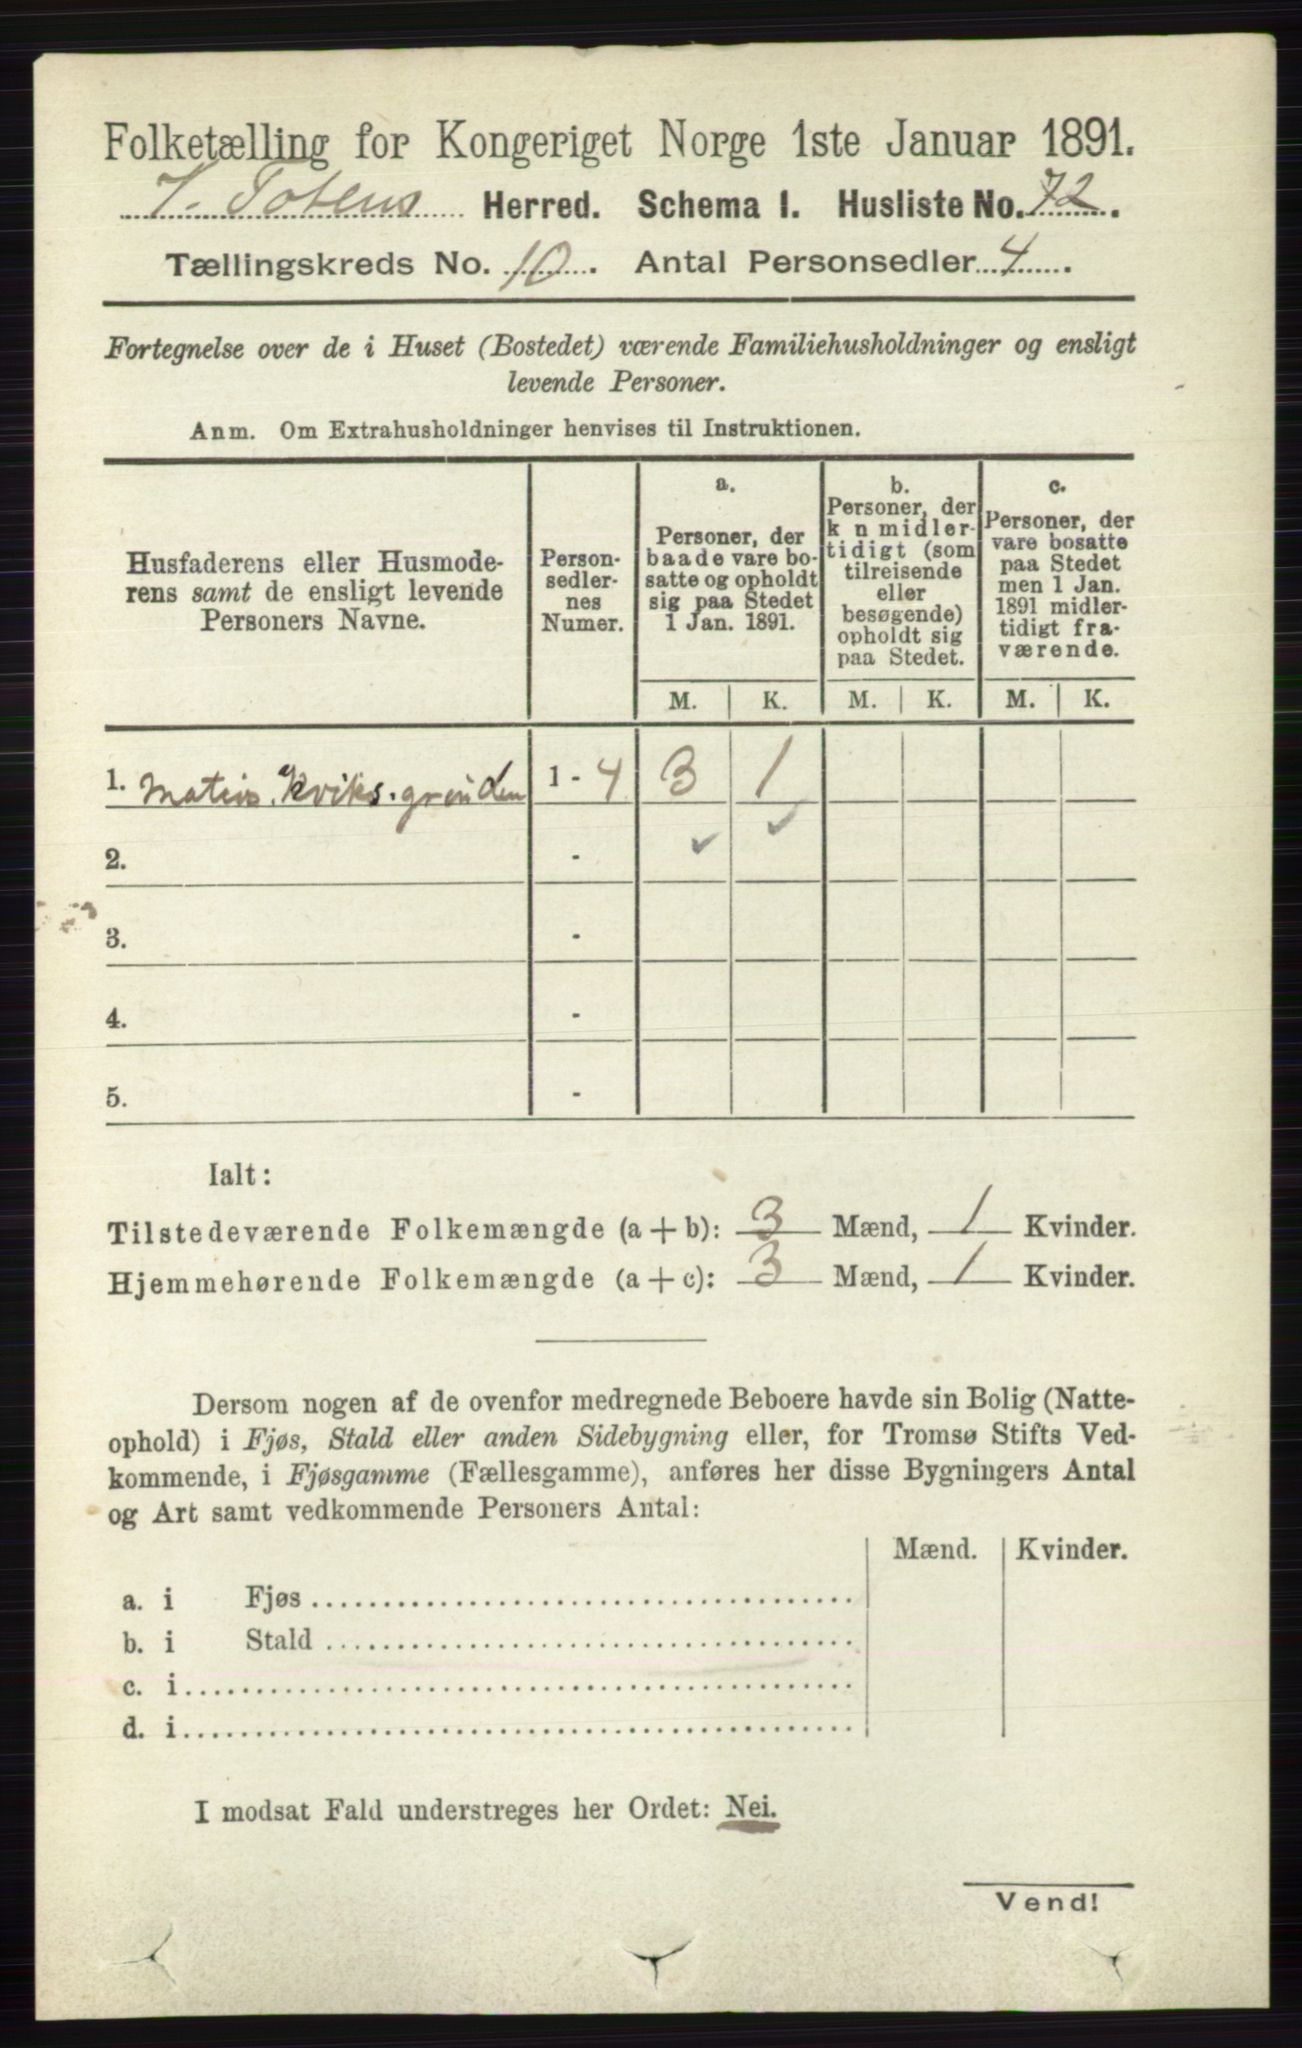 Folketælling for Kongeriget Norge 1ste Januar 1891.
V. Totens Herred. Schema I. Husliste No. 72.
Tællingskreds No. 10. Antal Personsedler 4.
Fortegnelse over de i Huset (Bostedet) værende Familiehusholdninger og ensligt
levende Personer.
Anm. Om Extrahusholdninger henvises til Instruktionen.
Husfaderens eller Husmode-
rens samt de ensligt levende
Personers Navne.
Person-
sedler-
nes
Numer.
a.
Personer, der
baade vare bo-
satte og opholdt
sig paa Stedet
1 Jan. 1891.
b.
Personer, der
k n midler-
tidigt (som
tilreisende
eller
besøgende)
opholdt sig
paa Stedet.
c.
Personer, der
vare bosatte
paa Stedet
men 1 Jan.
1891 midler-
tidigt fra-
værende.
M. K. M. K. M. K.
1. Kviks.grinden 1 - 4 3 1
2. -
3. -
4. -
5. -
Ialt:
Tilstedeværende Folkemængde (a + b): 3 Mænd, 1 Kvinder.
Hjemmehørende Folkemængde (a + c): 3 Mænd, 1 Kvinder.
Dersom nogen af de ovenfor medregnede Beboere havde sin Bolig (Natte-
ophold) i Fjøs, Stald eller anden Sidebygning eller, for Tromsø Stifts Ved-
kommende, i Fjøsgamme (Fællesgamme), anføres her disse Bygningers Antal
og Art samt vedkommende Personers Antal:
Mænd. Kvinder.
a. i Fjøs
b. i Stald
c. i
d. i
I modsat Fald understreges her Ordet: Nei.
Vend!